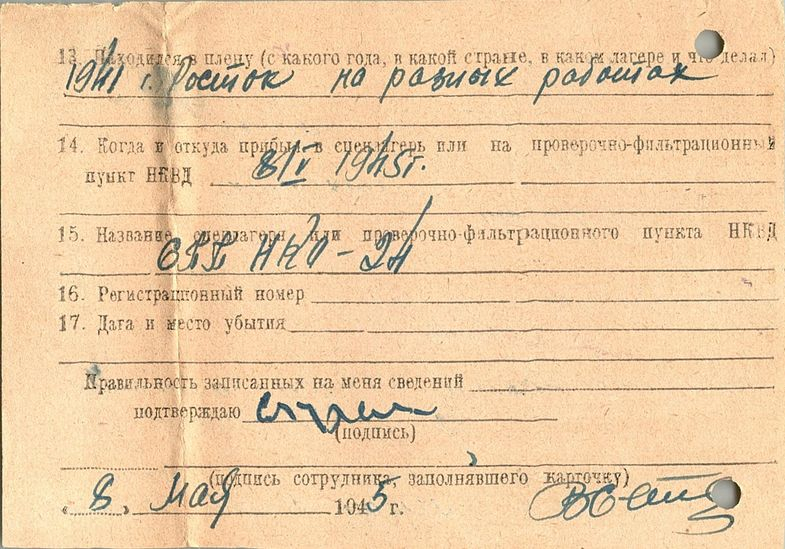 13. Находился в плену (с какого года, в какой стране, в каком лагере и что делал)
1941 г. Росток на разных работах
14. Когда и откуда прибыл в спецлагерь или на проверочно-фильтрационный
пункт НКВД 8/V 1945г.
15. Название спецлагеря или проверочно-фильтрационного пункта НКВД
НКО-
16. Регистрационный номер
17. Дата и место убытия
Правильность записанных на меня сведений
подтверждаю
(подпись)
(подпись сотрудника, заполнявшего карточку)
„8„ Мая 1945 г.